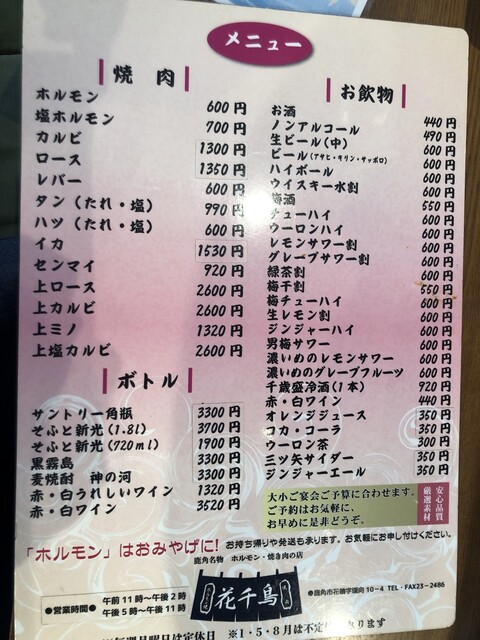 メニュー
焼肉
ホルモン 600円
塩ホルモン 700円
カルビ 1300円
ロース 1350円
レバー 600円
タン(たれ・塩) 990円
ハツ(たれ・塩) 600円
イカ 1530円
センマイ 920円
上ロース 2600円
上カルビ 2600円
上ミノ 1320円
上塩カルビ 2600円
ボトル
サントリー角瓶 3300円
そふと新光(1.8l) 3700円
そふと新光(720ml) 1900円
黒霧島 3300円
麦焼酎 神の河 3300円
赤・白うれしいワイン 1320円
赤・白ワイン 3520円
お飲物
お酒 440円
ノンアルコール 490円
生ビール(中) 600円
ビール(アサヒ・キリン・サッポロ) 600円
ハイボール 600円
ウイスキー水割 600円
梅酒 550円
チューハイ 600円
ウーロンハイ 600円
レモンサワー割 600円
グレープサワー割 600円
緑茶割 600円
梅干割 550円
梅チューハイ 600円
生レモン割 600円
ジンジャーハイ 600円
男梅サワー 600円
濃いめのレモンサワー 600円
濃いめのグレープフルーツ 600円
千歳盛冷酒(1本) 920円
赤・白ワイン 440円
オレンジジュース 350円
コカ・コーラ 350円
ウーロン茶 300円
三ツ矢サイダー 350円
ジンジャーエール 350円
大小ご宴会ご予算に合わせます。
ご予約はお気軽に、
お早めに是非どうぞ。
安心品質
厳選素材
「ホルモン」はおみやげに! お持ち帰りや発送も承ります。お気軽にお申し付けください。
鹿角名物 ホルモン・焼き肉の店
花千鳥
●営業時間● 午前11時〜午後2時
午後5時〜午後11時
●鹿角市花輪字堰向10−4 TEL・FAX23−2486
曜日は定休日 ※1・5・8月は不定 あります